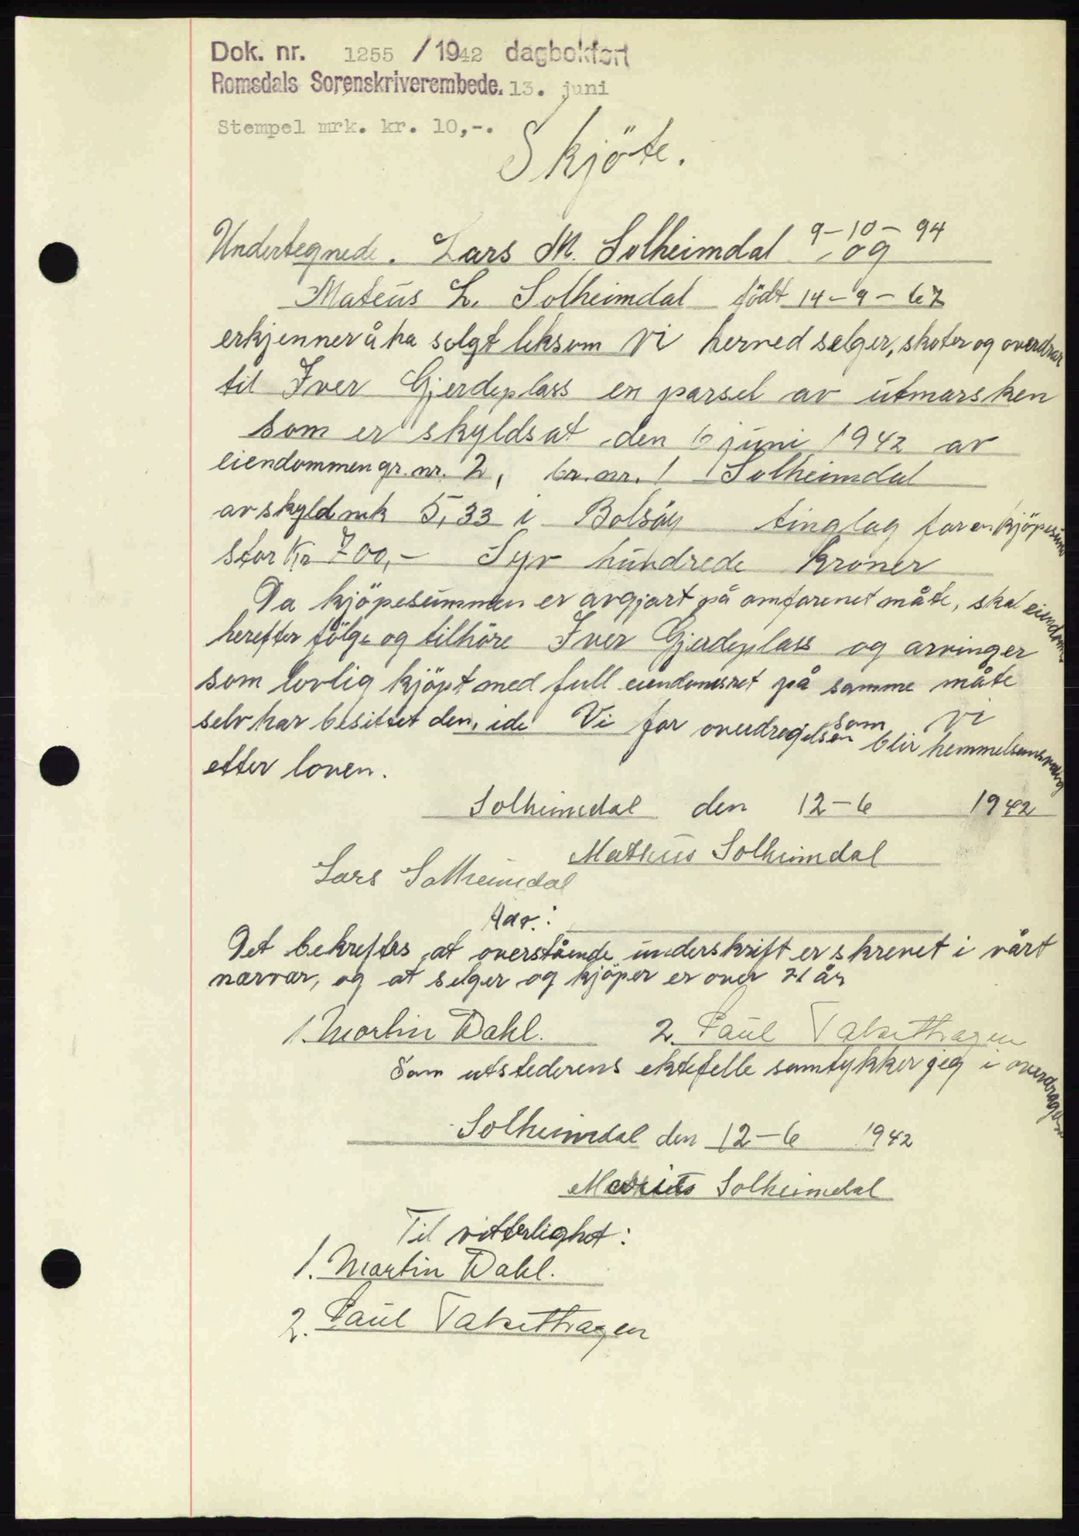 Dok. nr. 1255 /1942 dagbokført
Romsdals Sorenskriverembede. 13. juni
Stempel mrk. kr. 10,-.
Skjöte.
Undertegnede. Lars M. Solheimdal 9-10-94 og
Mateus L. Solheimdal födt 14-9-67
erkjenner å ha solgt liksom vi herved selger, skøter og overdrar
til Iver Gjerdeplass en parsel av utmarsken
som er skyldsat den 6 juni 1942 av
eiendommen gr. nr. 2, br. nr. 1 Solheimdal
av skyld mk 5,33 i Bolsöy tinglag for en kjöpesum
stor Kr 700,- Syv hundrede kroner
Da kjöpesummen er avgjort på omforenet måte, skal eiendom
herefter fölge og tilhöre Iver Gjerdeplass og arvinger
som lovlig kjöpt med full eiendomsret på samme måte
som vi
selv har besittet den, ide Vi for overdragelsen blir hemmelsansvarlig
efter loven.
Solheimdal den 12-6 1942
Matheus Solheimdal
Lars Solheimdal
Adr.:
Det bekreftes at overstående underskrift er skrevet i vårt
nærvær, og at selger og kjöper er over 21 år
1. Martin Dahl. 2. Paul
Som utstederens ektefelle samtykker jeg i overdragelsen
Solheimdal den 12-6 1942
Solheimdal
Til vitterlighet:
1. Martin Dahl.
2. Paul